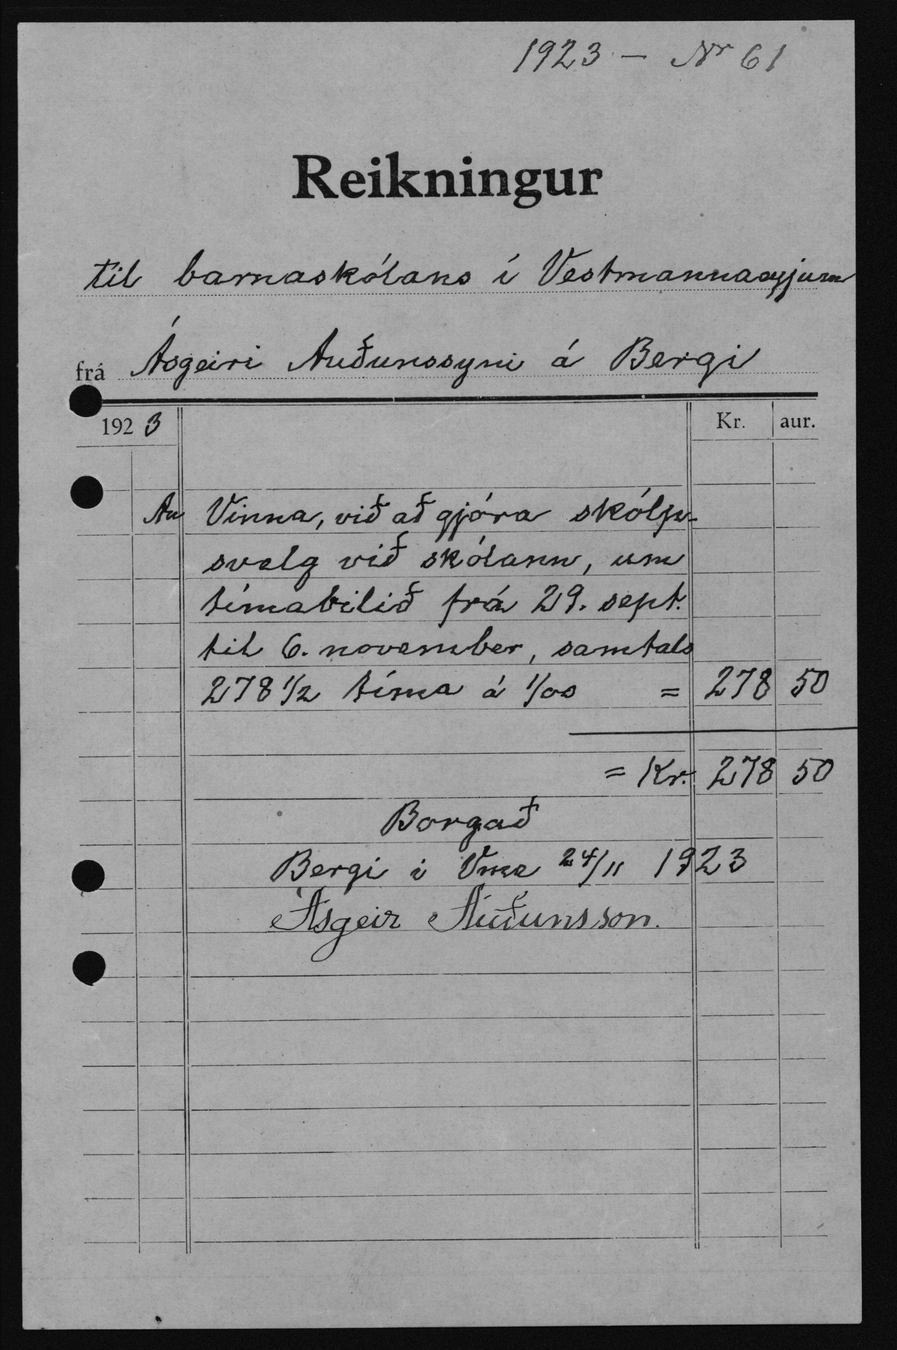 1923 – Nr 61
Reikningur
til barnaskólans í Vestmannaeyjum
frá Ásgeiri Auðunssyni á Bergi
1923 Kr. aur.
Au Vinna, við að gjöra skólp-
svelg við skólann, um
tímabilið frá 29. sept.
til 6. november, samtals
278 1/2 tíma á 1/00 = 278 50
= Kr. 278 50
Borgað
Bergi í Vme 24/11 1923
Ásgeir Auðunsson.